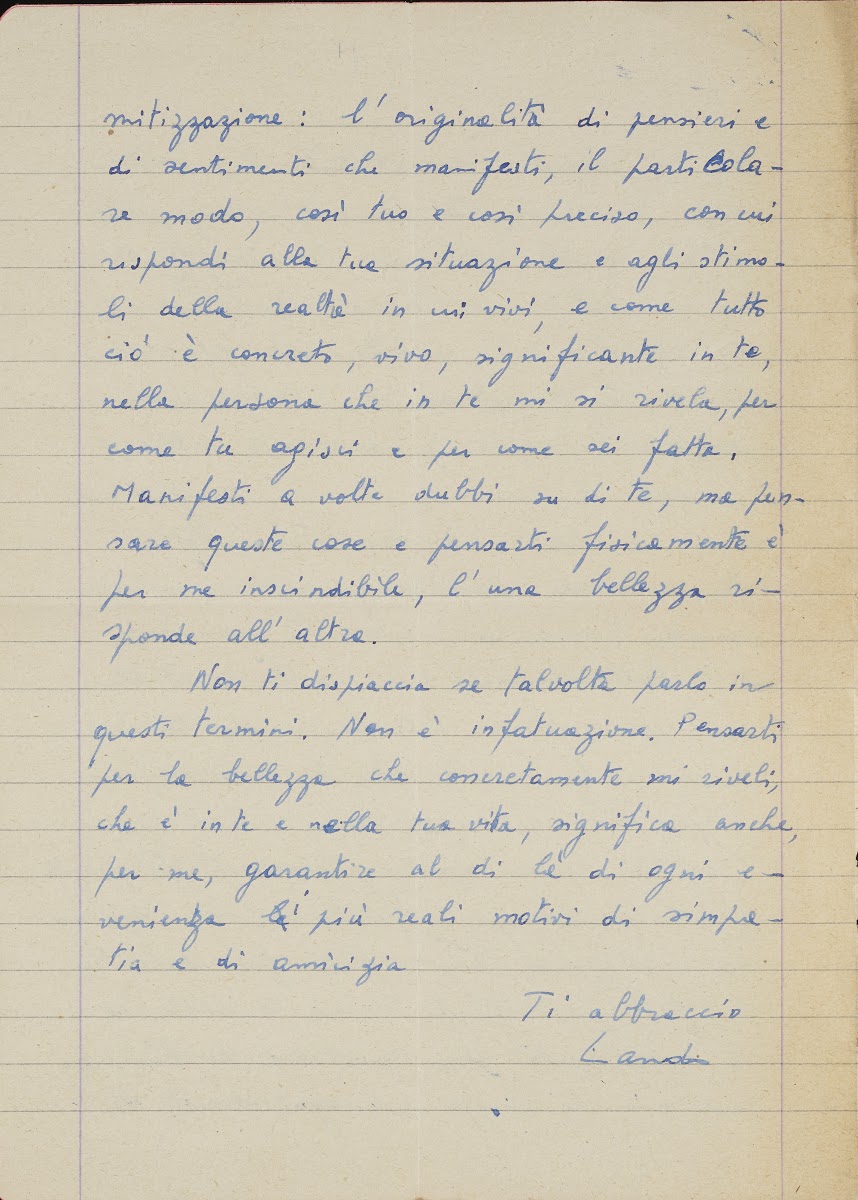 mitizzazione: l'originalità di pensieri e
di sentimenti che manifesti, il particola-
re modo, così tuo e così preciso, con cui
rispondi alla tua situazione e agli stimo-
li della realtà in cui vivi, e come tutto
ciò è concreto, vivo, significante in te,
nella persona che in te mi si rivela, per
come tu agisci e per come sei fatta.
Manifesti a volte dubbi su di te, ma pen-
sare queste cose e pensarti fisicamente è
per me inscindibile, l'una bellezza ri-
sponde all'altra.
Non ti dispiaccia se talvolta parlo in
questi termini. Non è infatuazione. Pensarti
per la bellezza che concretamente mi riveli,
che è in te e nella tua vita, significa anche,
per me, garantire al di là di ogni e-
venienza i più reali motivi di simpa-
tia e di amicizia
Ti abbraccio
Landi